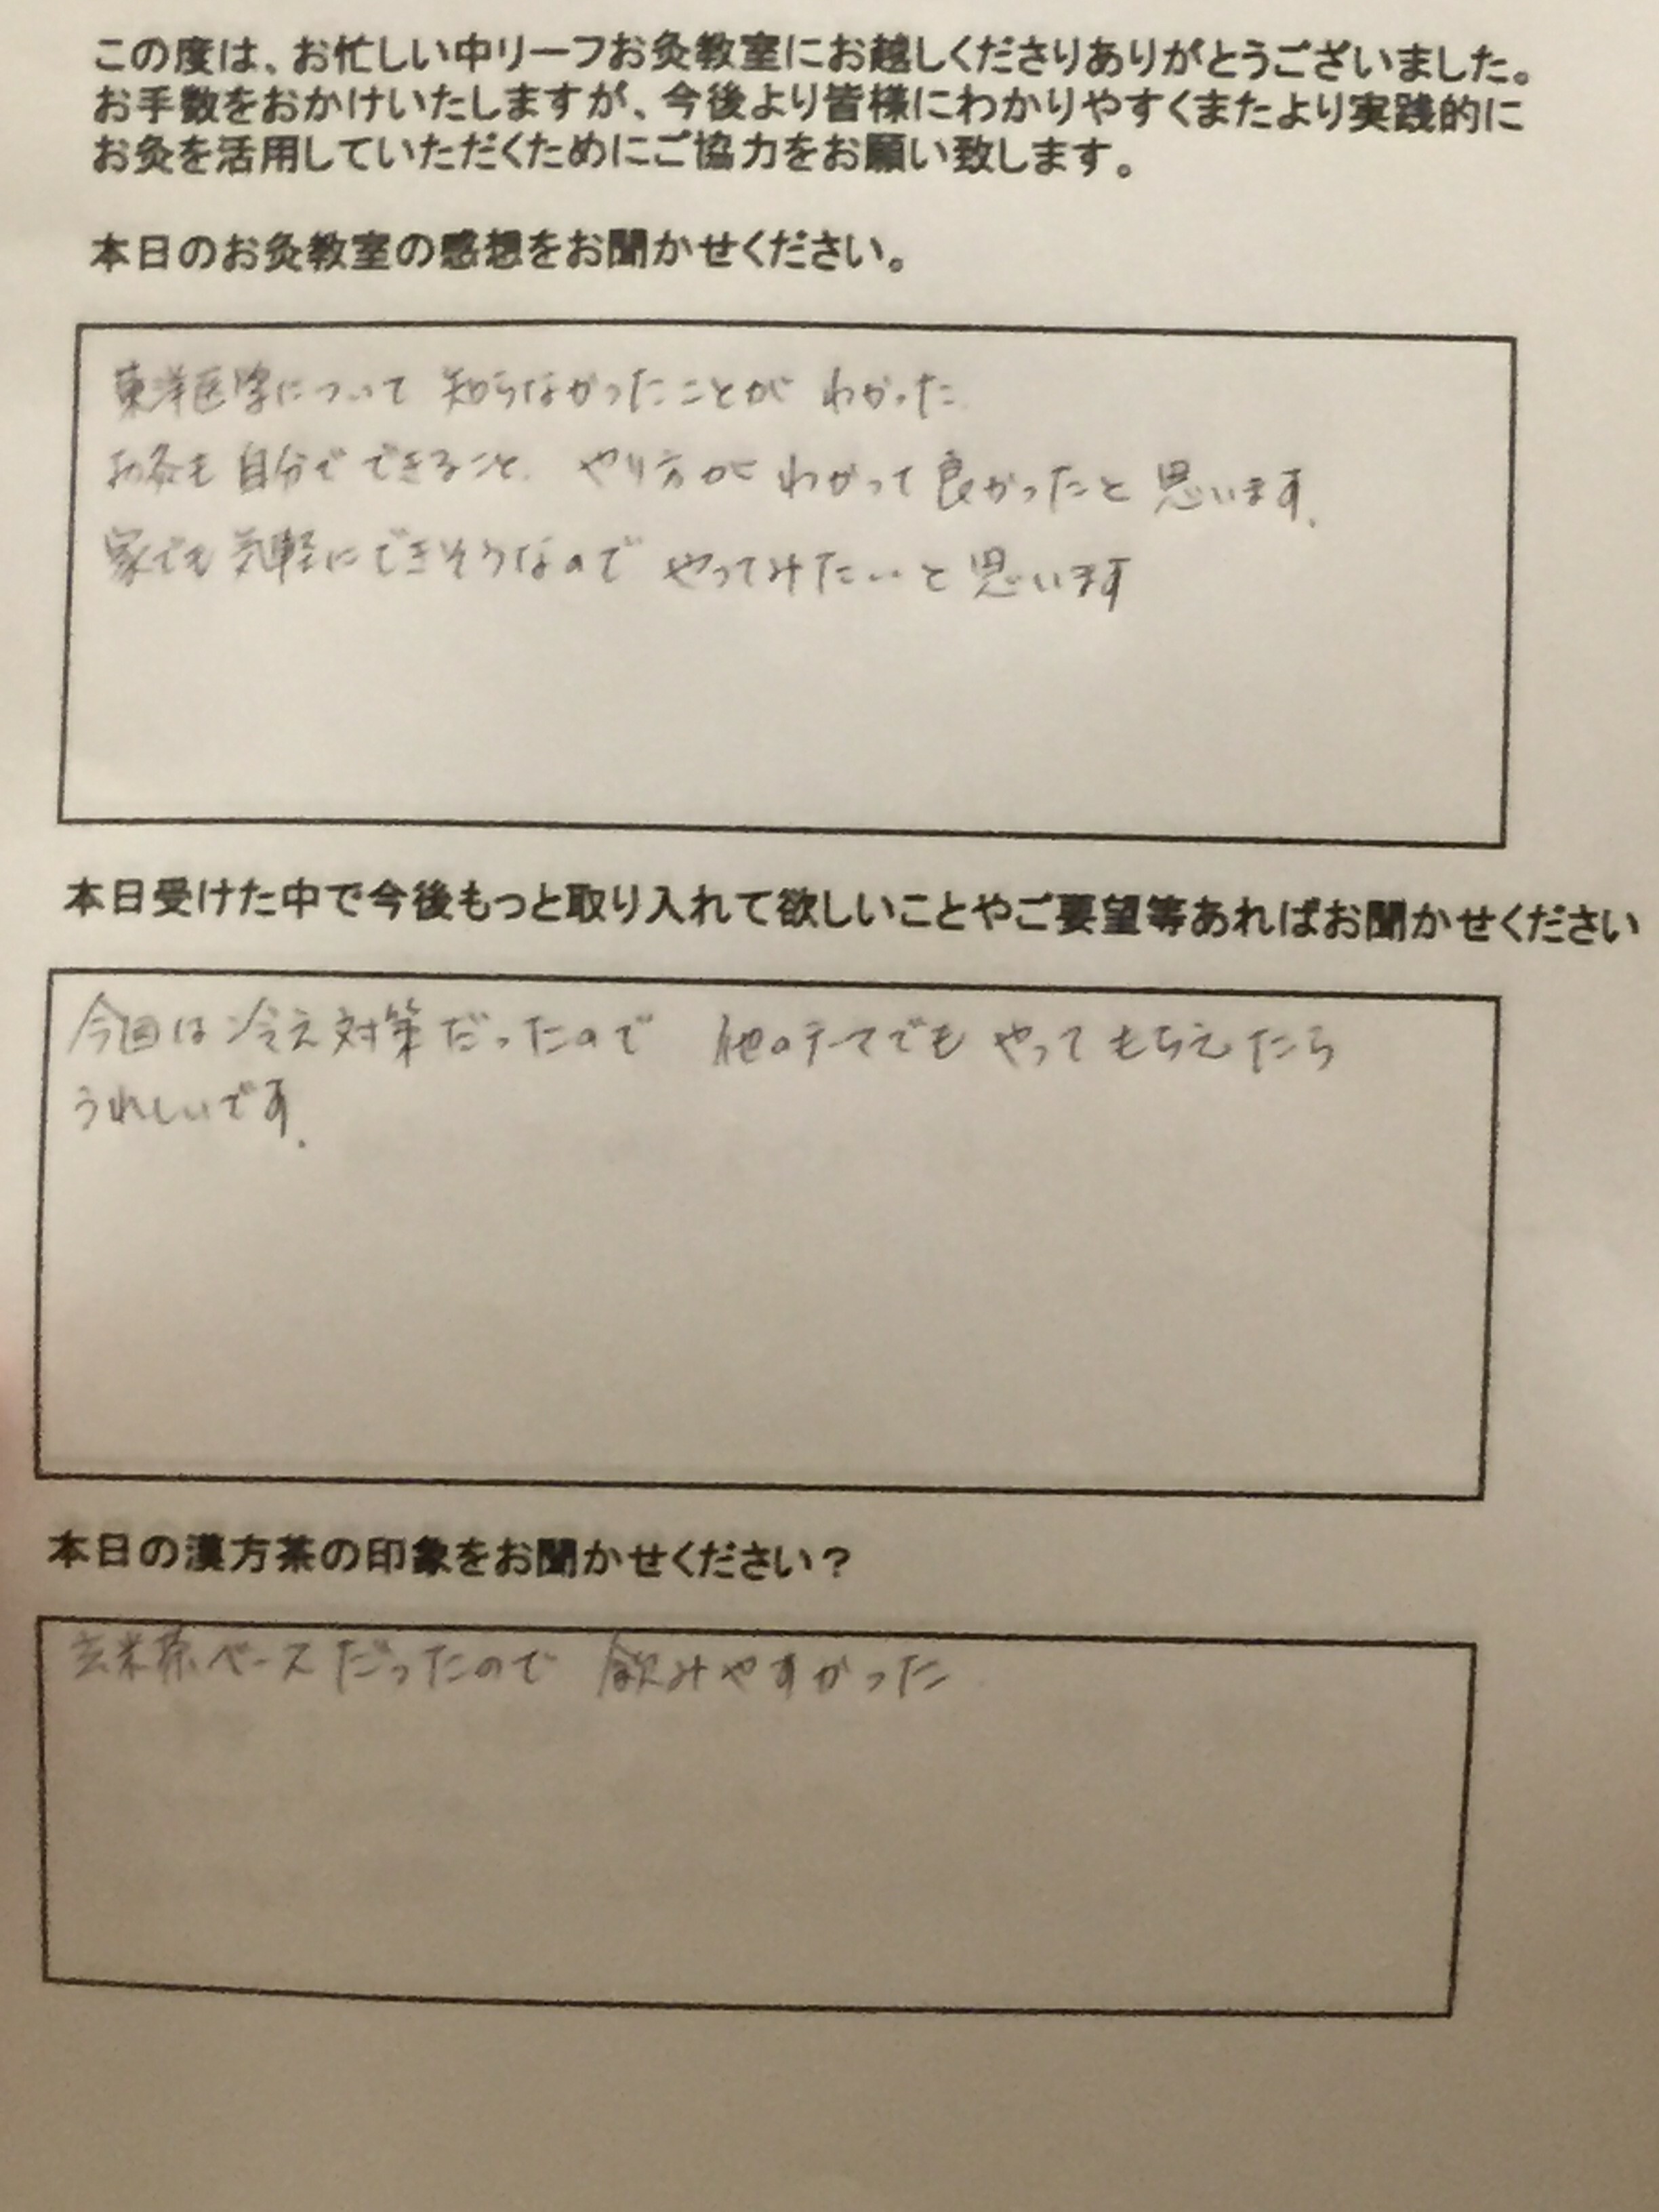 この度は、お忙しい中リーフお灸教室にお越しくださりありがとうございました。
お手数をおかけいたしますが、今後より皆様にわかりやすくまたより実践的に
お灸を活用していただくためにご協力をお願い致します。
本日のお灸教室の感想をお聞かせください。
東洋医学について 知らなかったことが わかった.
お灸も 自分で できること. やり方が わかって 良かったと 思います.
家でも 気軽にできそうなので やってみたいと 思います
本日受けた中で今後もっと取り入れて欲しいことやご要望等あればお聞かせください
今回は 冷え対策だったので 他のテーマでも やって もらえたら
うれしいです.
本日の漢方茶の印象をお聞かせください？
玄米茶ベースだったので 飲みやすかった.